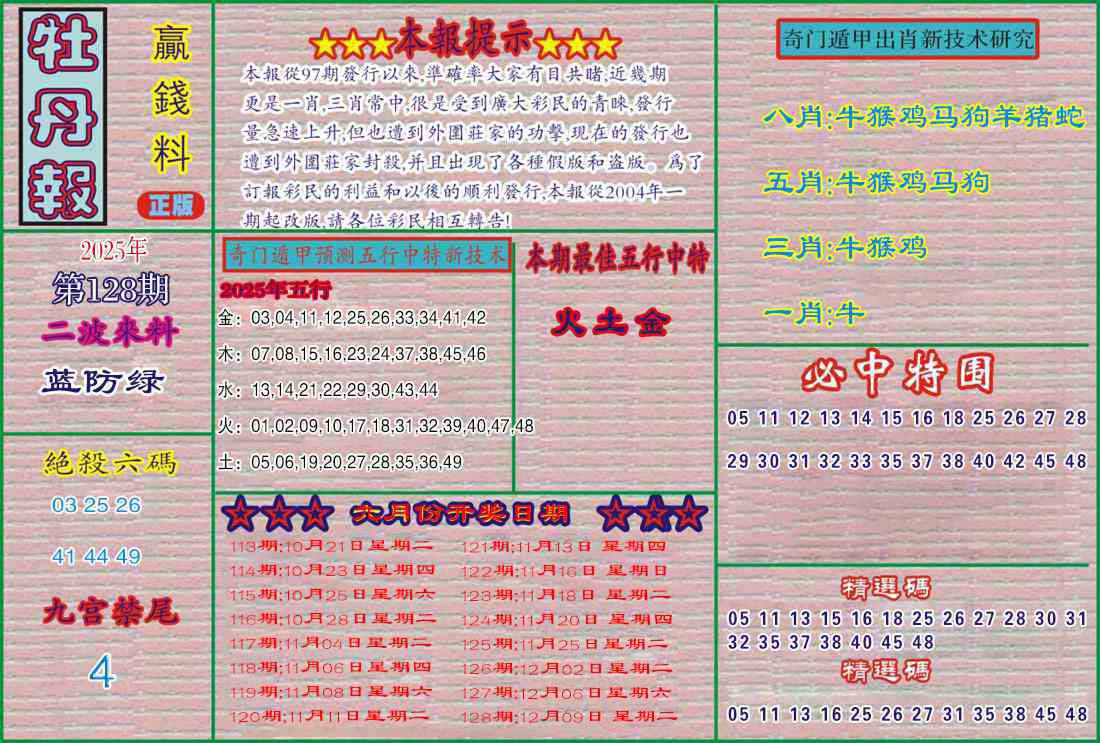 牡丹報
贏錢料
正版
★★★本報提示★★★
本報從97期發行以來,準確率大家有目共睹,近幾期
更是一肖,三肖常中,很是受到廣大彩民的青睞,發行
量急速上升,但也遭到外圍莊家的功擊,現在的發行也
遭到外圍莊家封殺,并且出現了各種假版和盗版。爲了
訂報彩民的利益和以後的順利發行,本報從2004年一
期起改版,請各位彩民相互轉告!
奇门遁甲出肖新技术研究
八肖:牛猴鸡马狗羊猪蛇
五肖:牛猴鸡马狗
三肖:牛猴鸡
一肖:牛
2025年
第128期
二波來料
蓝防绿
奇门遁甲预测五行中特新技术
2025年五行
金：03,04,11,12,25,26,33,34,41,42
木：07,08,15,16,23,24,37,38,45,46
水：13,14,21,22,29,30,43,44
火：01,02,09,10,17,18,31,32,39,40,47,48
土：05,06,19,20,27,28,35,36,49
本期最佳五行中特
火土金
必中特围
05 11 12 13 14 15 16 18 25 26 27 28
29 30 31 32 33 35 37 38 40 42 45 48
絕殺六碼
03 25 26
41 44 49
九宫禁尾
4
☆☆☆ 六月份开奖日期 ☆☆☆
113期:10月21日星期二 121期:11月13日 星期四
114期:10月23日星期四 122期:11月16日 星期日
115期:10月25日星期六 123期:11月18日 星期二
116期:10月28日星期二 124期:11月20日 星期四
117期:11月04日星期二 125期:11月25日星期二
118期:11月06日星期四 126期:12月02日星期二
119期:11月08日星期六 127期:12月06日星期六
120期:11月11日星期二 128期:12月09日 星期二
精選碼
05 11 13 15 16 18 25 26 27 28 30 31
32 35 37 38 40 45 48
精選碼
05 11 13 16 25 26 27 31 35 38 45 48